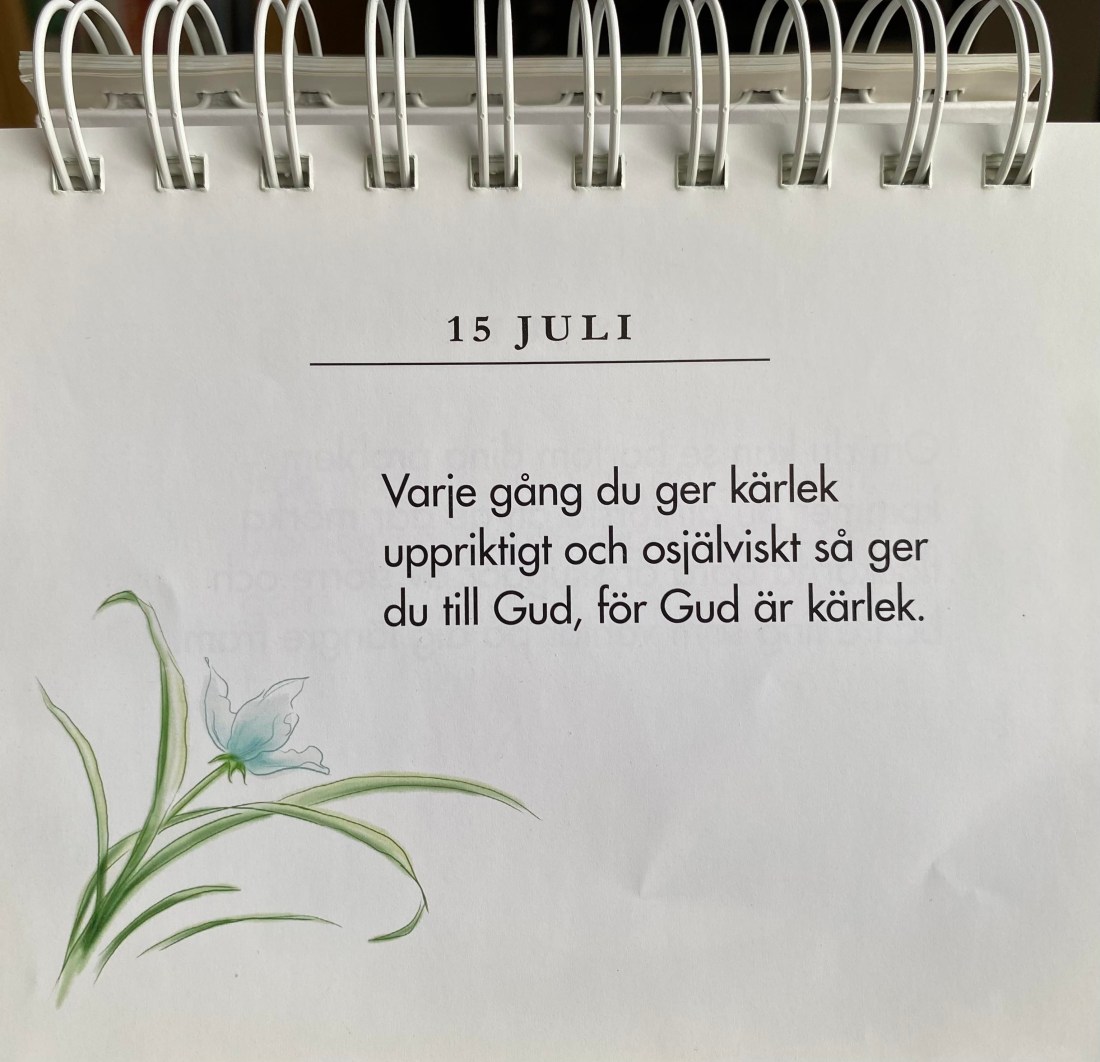 15 JULI
Varje gång du ger kärlek
uppriktigt och osjälviskt så ger
du till Gud, för Gud är kärlek.